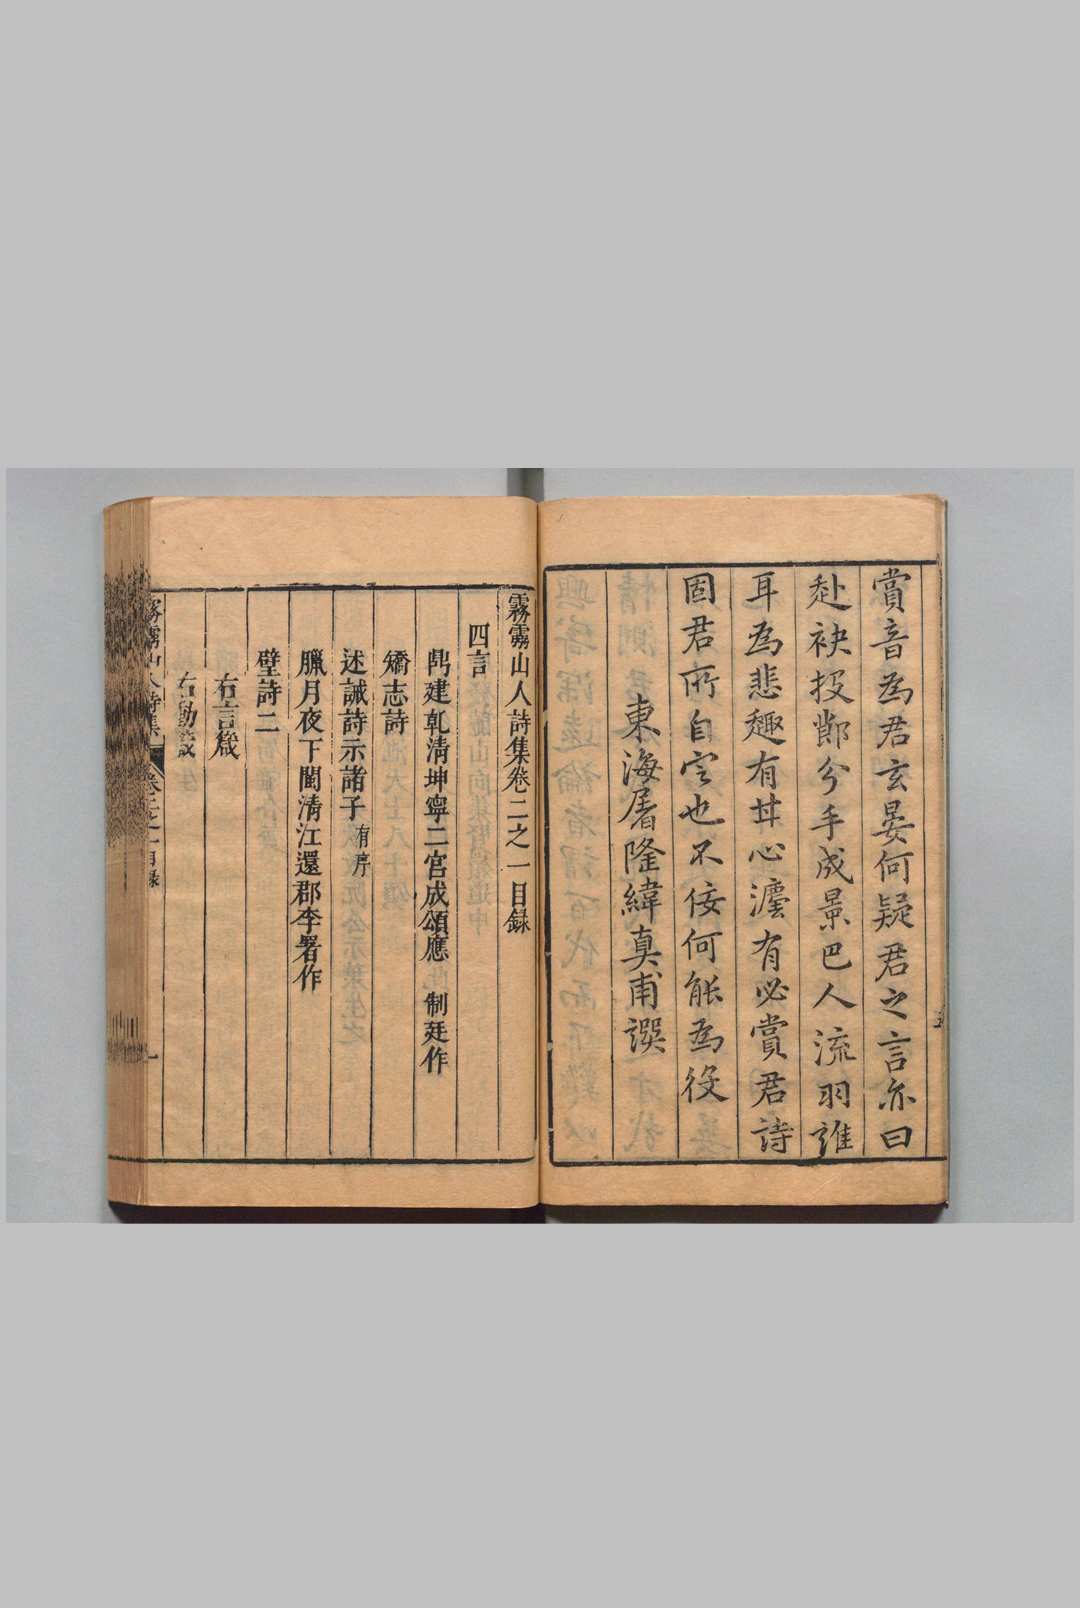 賞音為君玄晏何疑君之言亦曰
赴袂投鄼分手成景巴人流羽誰
耳為悲趣有其心瀍有必賞君詩
固君所自定也不佞何能為役
東海屠隆緯真甫譔
霧靈山人詩集卷二之一目録
四言
肇建乾清坤寧二宮成頌應 制廷作
矯志詩
述誡詩示諸子有序
臘月夜下閩清江還郡李署作
璧詩二
右言箴
右動箴
山人詩集 卷二之一目録 一